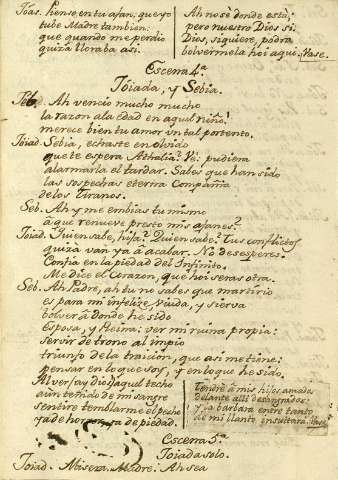 Joas. Pienso en tu afan; que yo
tube Madre tambien:
que quando me perdio
quizà lloraba asi.
Ah no sè donde està;
pero nuestro Dios si
Dios, si quiere, podrà
bolvermela hoi aqui. Vase.
Escena 4.ª
Joiada, y Sebia.
Seb. Ah venciò mucho mucho
la razon a la Edad en aquel niño!
merece bien tu amor un tal portento.
Joiad. Sebia, echaste en olvido
que te espera Athalia? Vè: pudiera
alarmarla el tardar. Sabes que han sido
las sospechas eterna Compañia
de los Tiranos.
Seb. Ah y me embias tu mismo
à que renueve presto mis afanes?
Joiad. Quien sabe, hija? Quien sabe? Tus conflictos
quizà van ya à acabar. No desesperes.
Confia en la piedad del Infinito.
Me dice el Corazon, que hoi seras otra.
Seb. Ah Padre, ah tu no sabes que martirio
es para mi infelize, Viuda, y sierva
bolver à donde he sido
Esposa, y Reina: ver mi ruina propia:
servir de trono al impio
triunfo de la traicion, que asi me tiene:
pensar en lo que soy, y en lo que he sido.
Al ver (ay de mi) aquel techo
aun teñido de mi sangre
sentire temblarme el pecho
ya de horror, ya de piedad.
Tendrè à mis hijos amados
delante alli desangrados:
y la barbara entre tanto
de mi llanto insultarà. Vase
Escena 5.ª
Joiada solo.
Joiad. Misera Madre! Ah sea